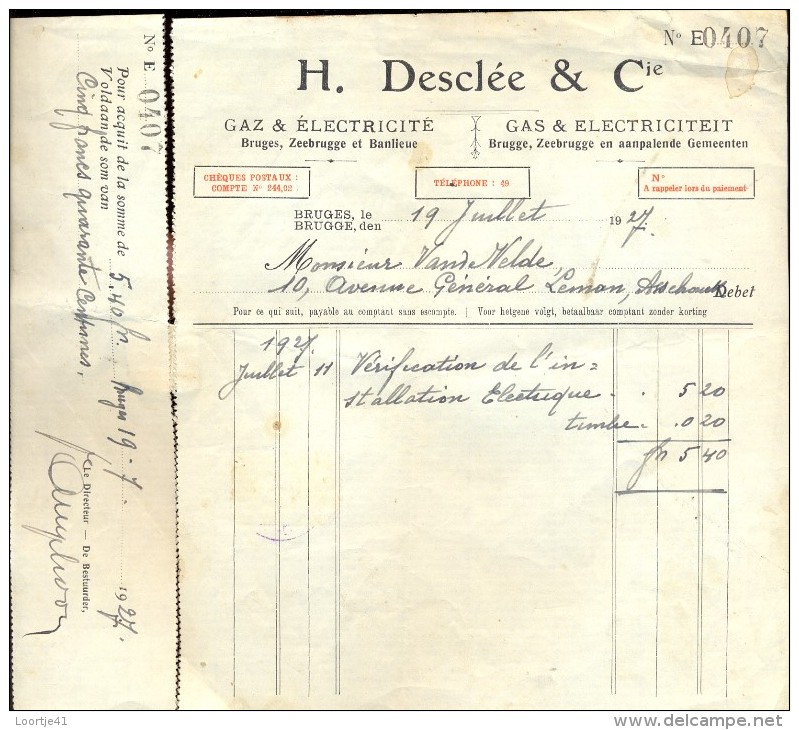 Nº E 0407
Pour acquit de la somme de 5.40 fr.
Voldaan de som van
Cinq francs quarante Centimes,
Bruges 19 - 7 - 1927.
Le Directeur — De Bestuurder,
Nº E0407
H. Desclée & Cie
GAZ & ÉLECTRICITÉ
Bruges, Zeebrugge et Banlieue
GAS & ELECTRICITEIT
Brugge, Zeebrugge en aanpalende Gemeenten
CHÈQUES POSTAUX :
COMPTE Nº 244,02
TÉLÉPHONE : 49
Nº
A rappeler lors du paiement
BRUGES, le
BRUGGE, den 19 Juillet 1927.
Monsieur Vande Velde,
10, Avenue Général Leman, Debet
Pour ce qui suit, payable au comptant sans escompte. | Voor hetgene volgt, betaalbaar comptant zonder korting
1927.
Juillet 11 Vérification de l'in=
stallation Electrique . . 5 20
timbre . . 0 20
fr 5 40
Loortje41
www.delcampe.net